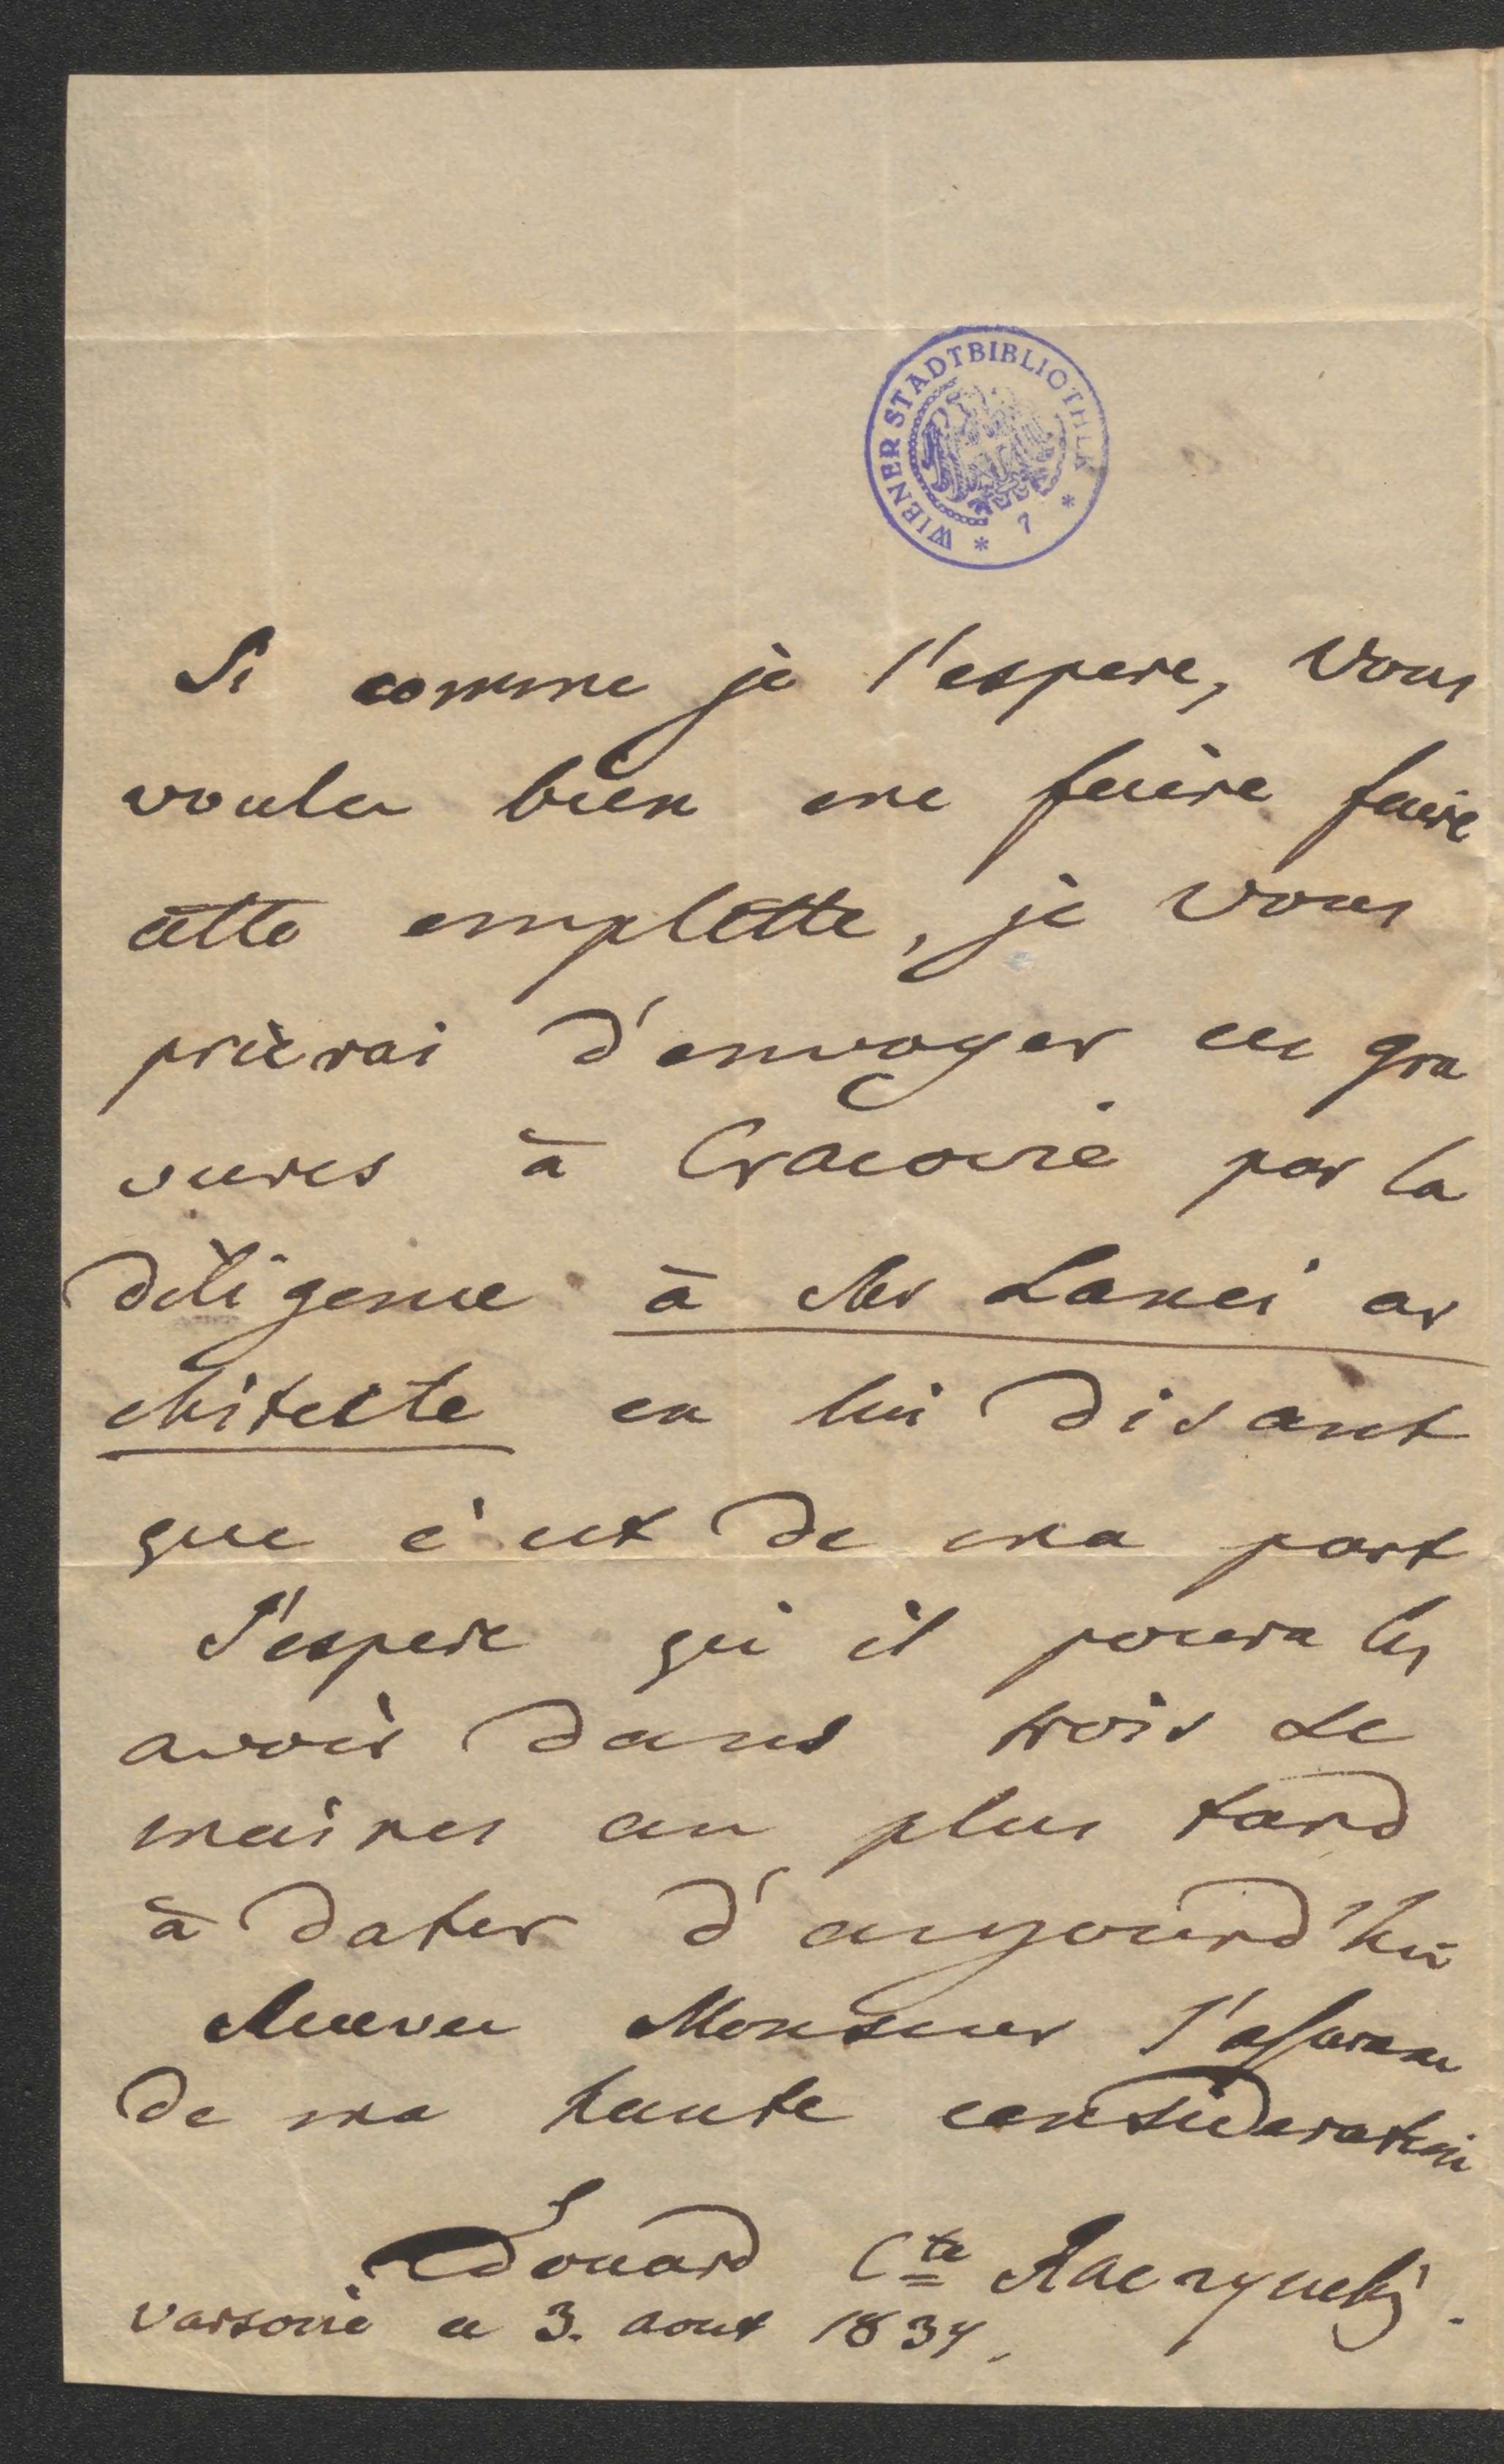 WIENER STADTBIBLIOTHEK * 7 *
Si comme je l'espere, Vous
voulez bien me faire faire
cette emplette, je Vous
prierai d'envoyer ces gra
vures à Cracovie par la
diligence à Mr Lanci ar
chitecte en lui disant
que c'est de ma part
J'espere qu'il poura les
avoir dans trois se
maines au plus tard
à dater d'aujourd'hui
Recevez Monsieur l'assurance
de ma haute consideration
Edouard Cte Raczynski.
Varsovie ce 3. aout 1834.